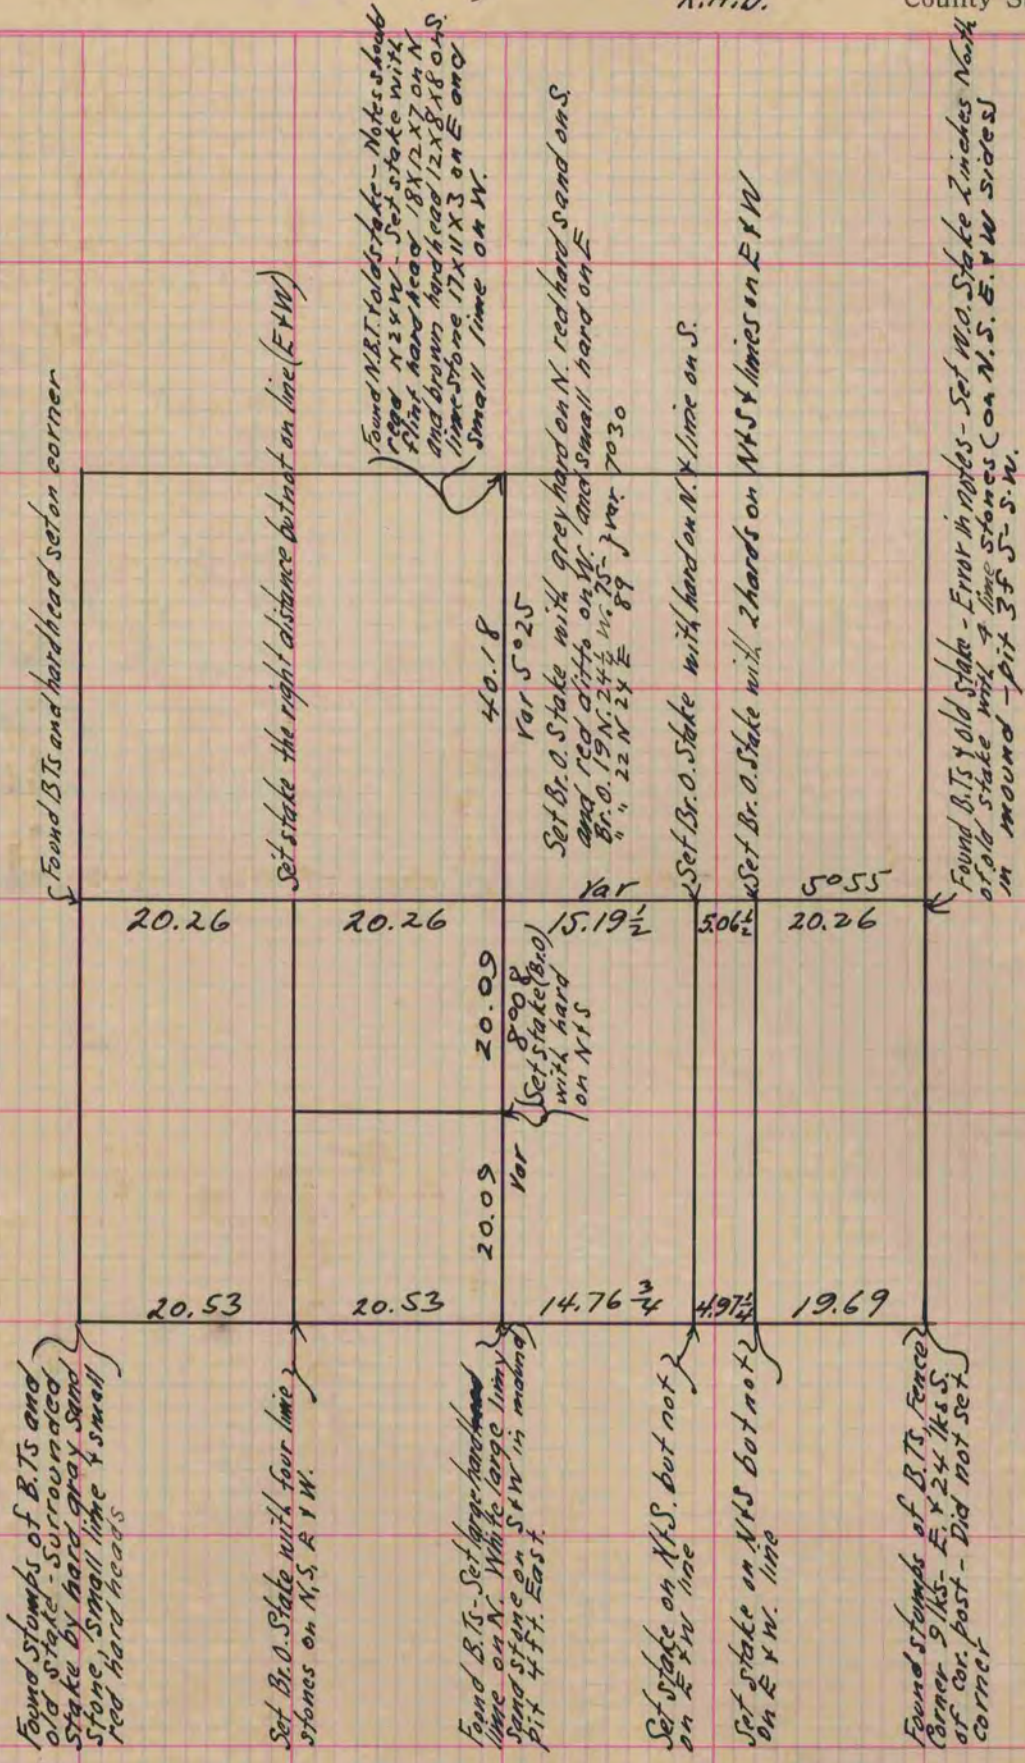 R.H.D.
County S
Found B.Ts and hardhead set on corner
Set stake the right distance but not on line (E & W)
Found N.B.T. & old stake - Notes should
read N 24 W - Set stake with
flint hard head 18X12X7 on N
and brown hardhead 12X8X8 on S.
limestone 17X11X3 on E and
small lime on W.
Set Br. O. Stake with grey hard on N. red hard sand on S.
and red ditto on W. and small hard on E
Br. O. 19 N. 24½ W. 75- } var. 7°30
" " 22 N 24 E 89
Set Br. O. Stake with hard on N. & lime on S.
Set Br. O. Stake with 2 hards on N & S & limes on E & W
Found B.Ts & old Stake - Error in notes - Set W.O. Stake 2 inches North
of old stake with 4 lime stones (on N. S. E. & W sides)
in mound - pit 3 ft S-S.W.
40.18
Var 5°25
20.26
20.26
Var
15.19½
5.06½
5°55
20.26
20.09
8°08
(Set stake (Br.O)
with hard
on N & S
20.09
Var
20.53
20.53
14.76¾
4.97¼
19.69
Found stumps of B.Ts and
old stake - Surrounded
Stake by hard gray sand
Stone, small lime & small
red hard heads
Set Br. O. Stake with four lime
stones on N, S, E & W.
Found B.Ts - Set large hard
lime on N. White large limy
sand stone on S & W in mound
pit 4 ft. East.
Set stake on N & S. but not
on E & W line
Set stake on N & S but not
on E & W. line
Found stumps of B.Ts, Fence
Corner 9 lks - E. & 24 lks S.
of cor. post - Did not set
corner